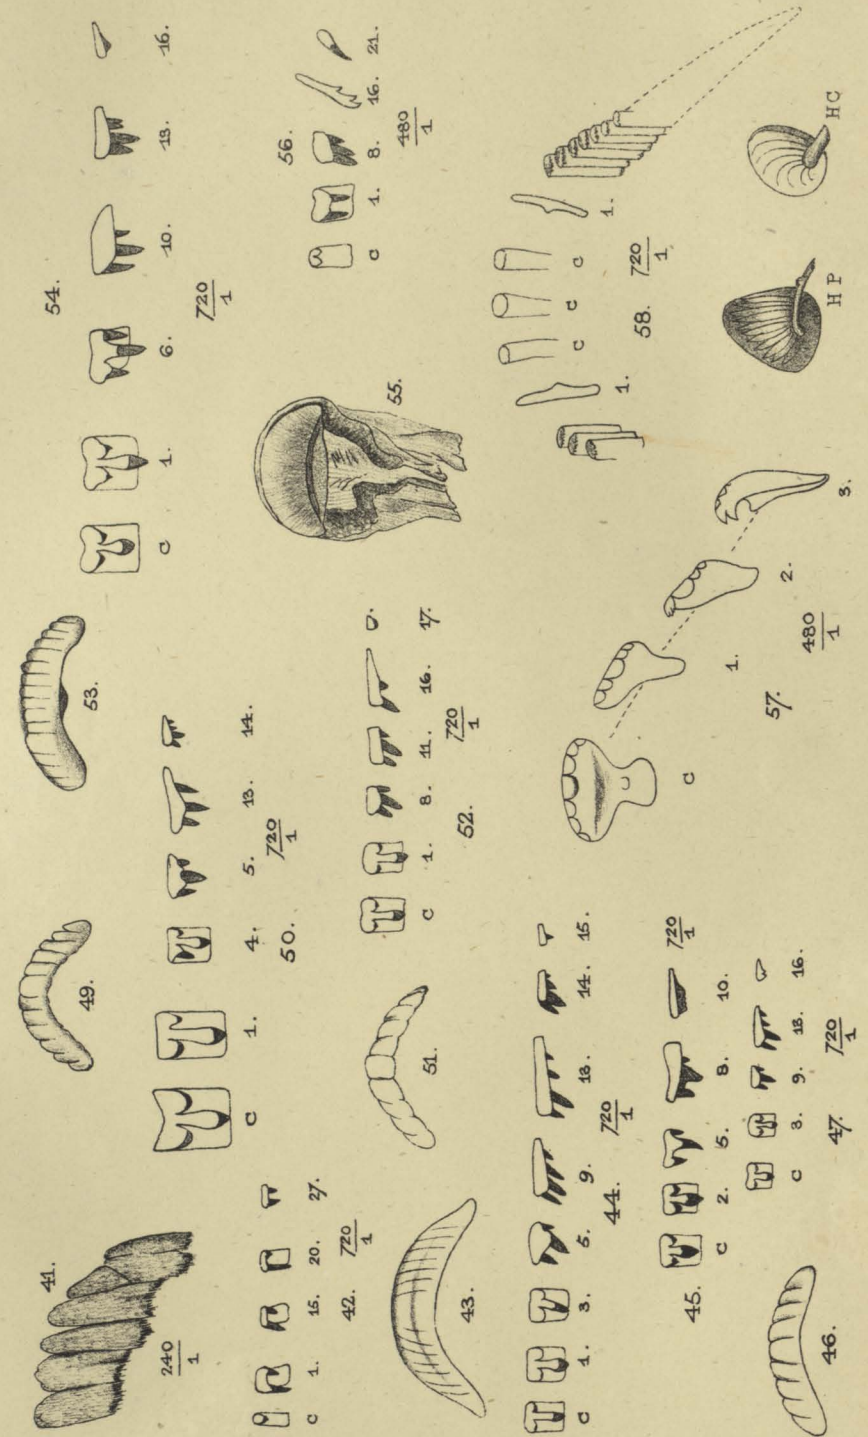 41.
240
1
C 1. 15. 20. 27.
42. 720
1
43.
C 1. 3. 5. 9. 13. 14. 15.
44. 720
1
C 2. 5. 8. 10. 720
1
45.
46.
C 3. 9. 13. 16.
47. 720
1
49.
C 1. 4. 5. 13. 14.
50. 720
1
51.
C 1. 8. 11. 16. 17.
52. 720
1
53.
54.
C 1. 6. 10. 13. 16.
720
1
55.
56.
C 1. 8. 16. 21.
480
1
C 1. 2. 3.
57. 480
1
1. C C C 1.
58. 720
1
HP HC